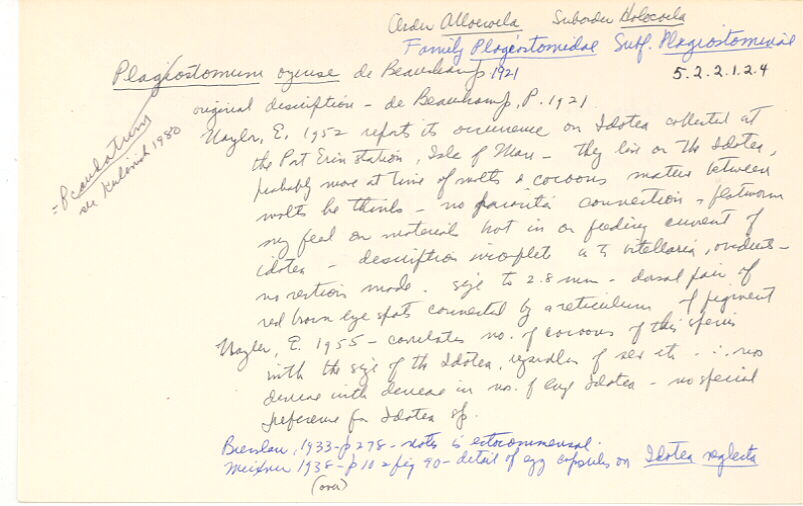 Order Alloeocoela Suborder Holocoela
Family Plagiostomidae Subf. Plagiostominae
Plagiostomum oyense de Beauchamp 1921
5.2.2.1.2.4
= P. caudatum
see Kulinich 1980
original description – de Beauchamp, P. 1921.
Naylor, E. 1952 reports its occurrence on Idotea collected at
the Port Erin Station, Isle of Man – they live on the Idotea,
probably move at time of molts & cocoons mature between
molts he thinks – no parasitic connection – flatworm
may feed on materials brot in on feeding current of
idotea – description incomplete as to vitellaria, oviducts –
no sections made. size to 2.8 mm – dorsal pair of
red brown eye spots connected by a reticulum of pigment
Naylor, E. 1955 – correlates no. of cocoons of this species
with the size of the Idotea, regardless of sex etc. ∴ nos
decrease with decrease in no. of large Idotea – no special
preference for Idotea sp.
Bresslau, 1933 – p 278 – notes is ectocommensal.
Meixner 1938 – p 102 fig 90 – detail of egg capsules on Idotea neglecta
(over)